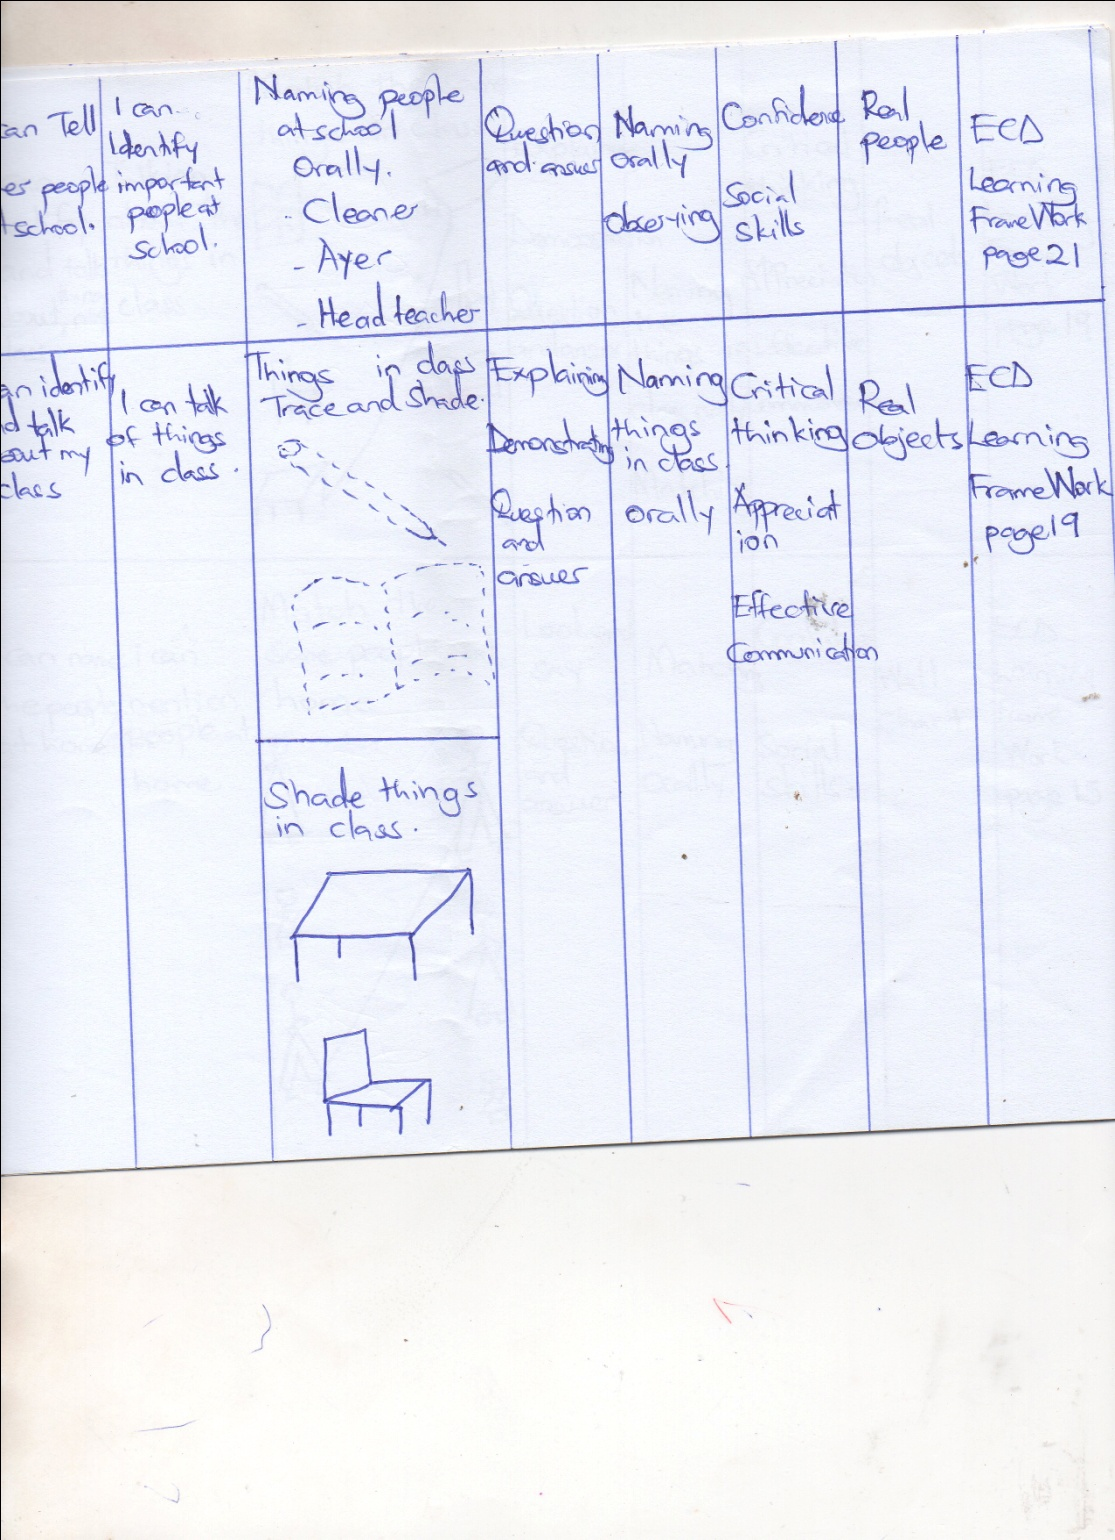 an Tell
er people
t school.
I can
Identify
important
people at
school.
Naming people
at school
Orally.
- Cleaner
- Ayer
- Head teacher
Question
and answer
Naming
orally
observing
Confidence
Social
skills
Real
people
ECD
Learning
FrameWork
page 21
an identify
d talk
out my
class
I can talk
of things
in class.
Things in class
Trace and Shade.
Shade things
in class.
Explaining
Demonstrating
Question
and
answer
Naming
things
in class.
orally
Critical
thinking
Appreciat
ion
Effective
Communication
Real
objects
ECD
Learning
FrameWork
page 19